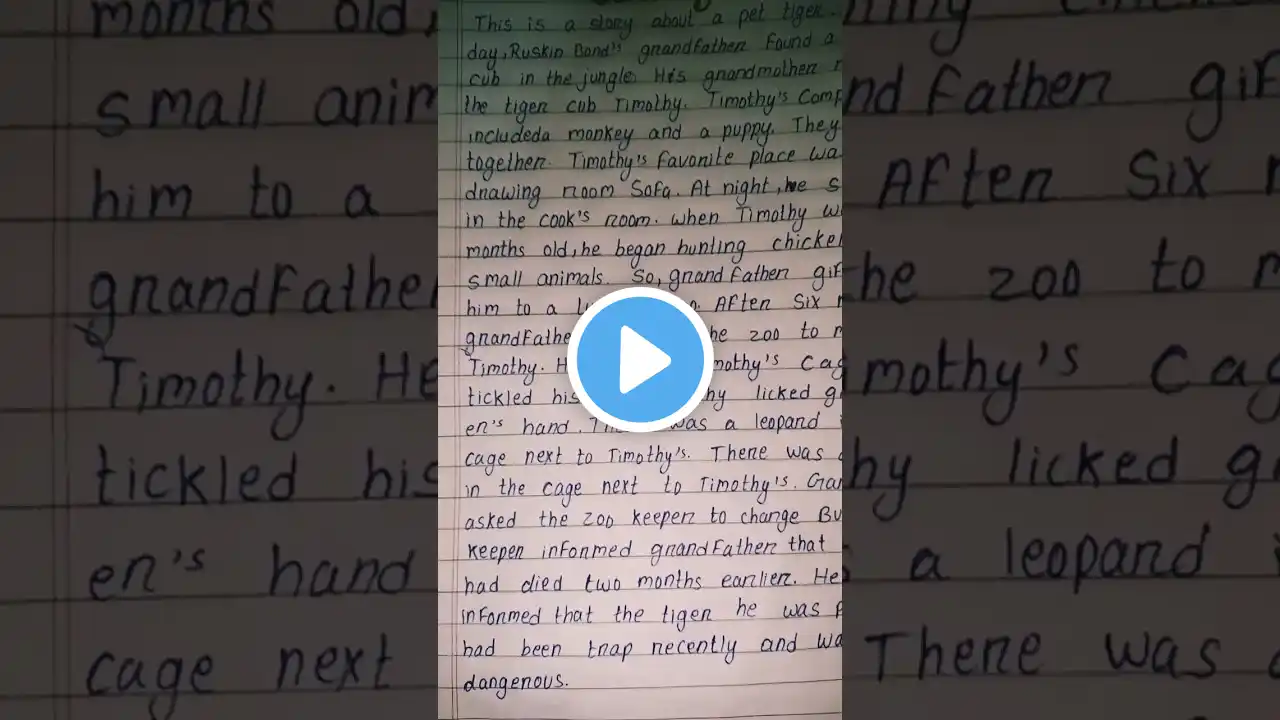 This is a story about a pet tiger.
day, Ruskin Bond's grandfather Found a
cub in the jungle. His grandmother
the tiger cub Timothy. Timothy's Comp
includeda monkey and a puppy. They
together. Timothy's favorite place wa
drawing room Sofa. At night, he s
in the cook's room. when Timothy w
months old, he began hunting chicke
small animals. So, grandfather gif
him to a AFter Six
grandFathe he zoo to
Timothy. H mothy's Cag
tickled his hy licked g
er's hand. was a leopard
cage next to Timothy's. There was
in the cage next to Timothy's. Gra
asked the zoo keeper to change Bu
keeper inFormed grandFather that
had died two months earlier. He
inFormed that the tiger he was p
had been trap recently and wa
dangerous.